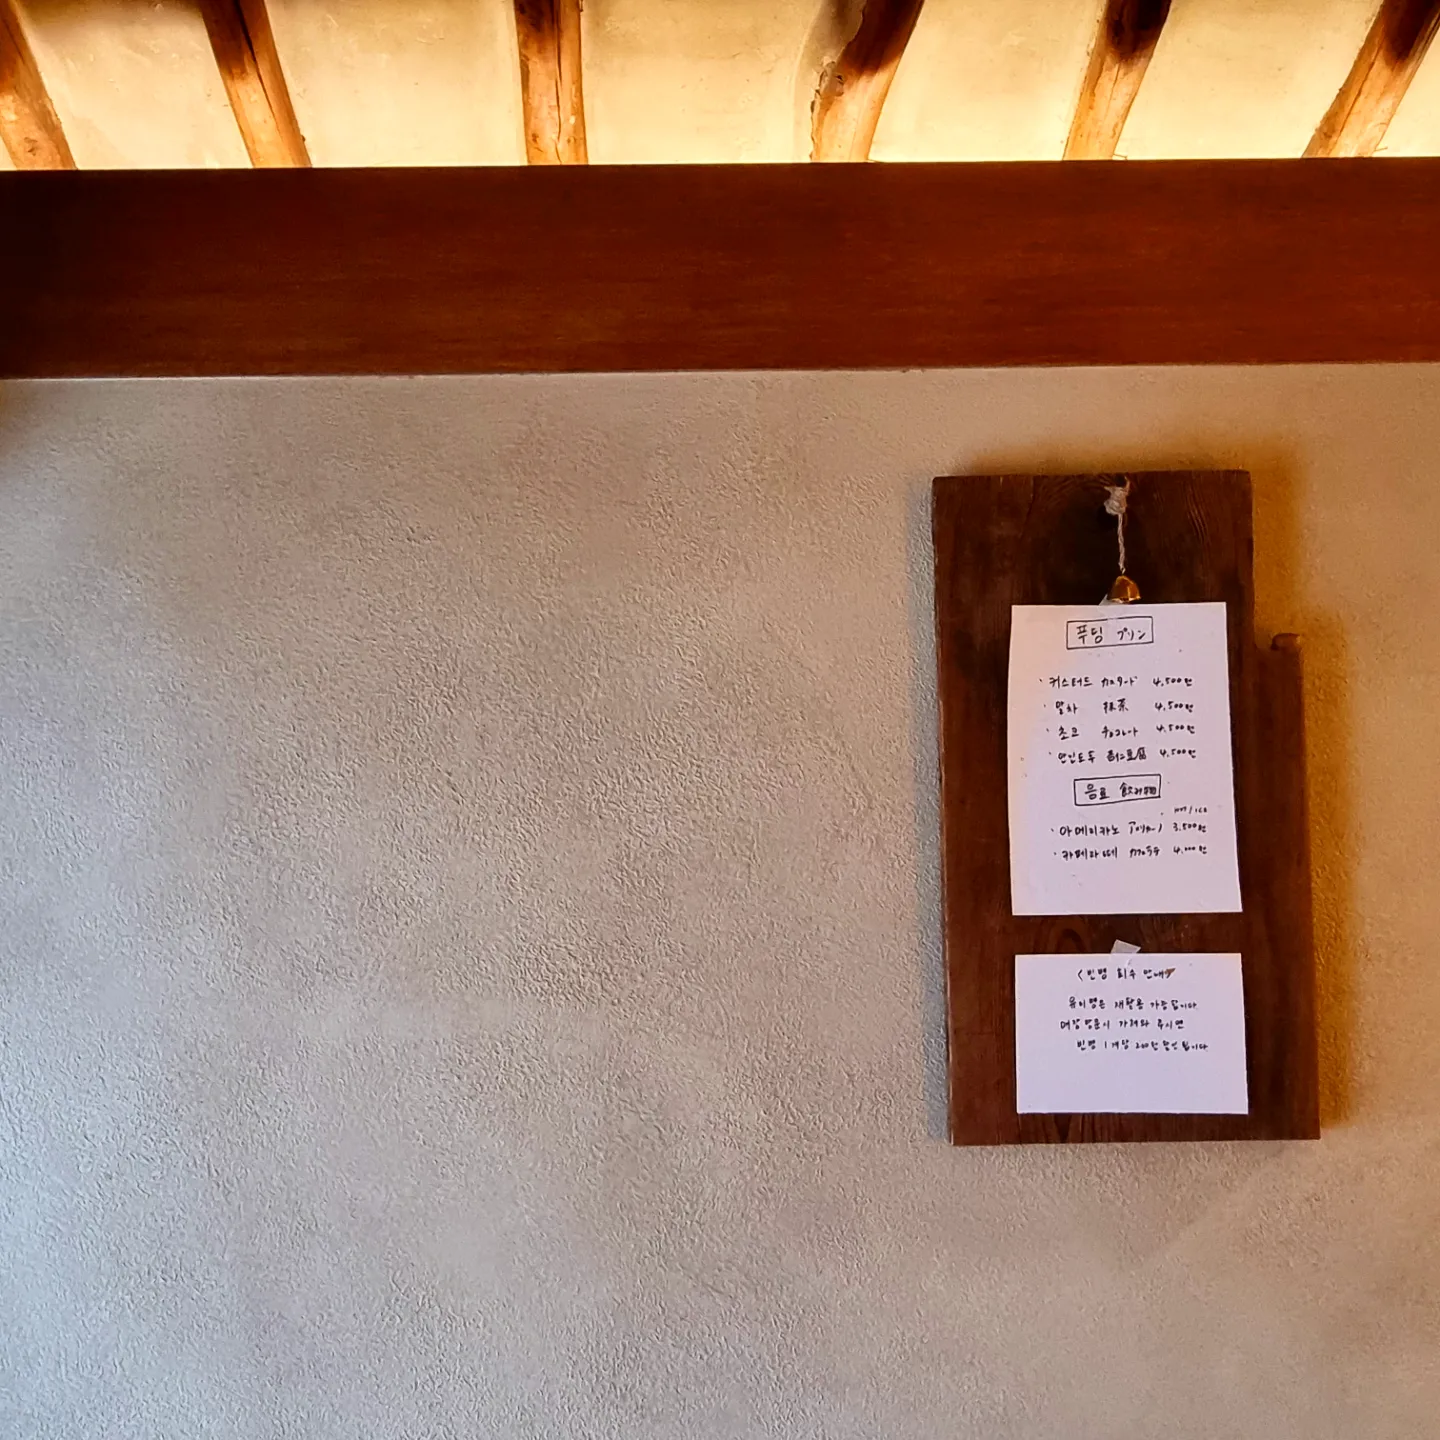 푸딩 プリン
· 커스터드 カスタード 4,500원
· 말차 抹茶 4,500원
· 초코 チョコレート 4,500원
· 안닌도후 杏仁豆腐 4,500원
음료 飲み物
HOT / ICE
· 아메리카노 アメリカーノ 3,500원
· 카페라떼 カフェラテ 4,000원
<빈병 회수 안내>
유리병은 재활용 가능합니다
매장 방문시 가져와 주시면
빈병 1개당 200원 할인 됩니다